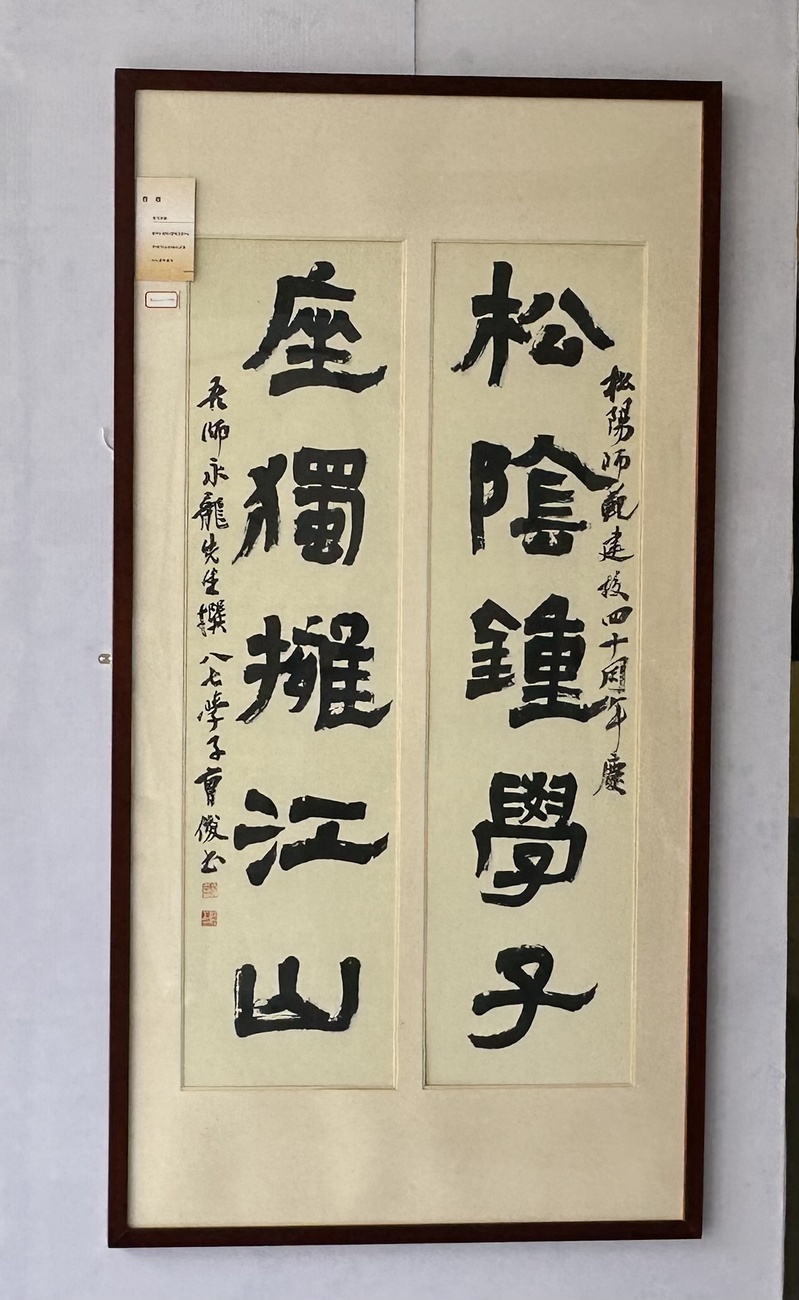 松陽師範建校四十周年慶
松陰鍾學子
座獨擁江山
吾師永龍先生撰 八七學子曹俊書